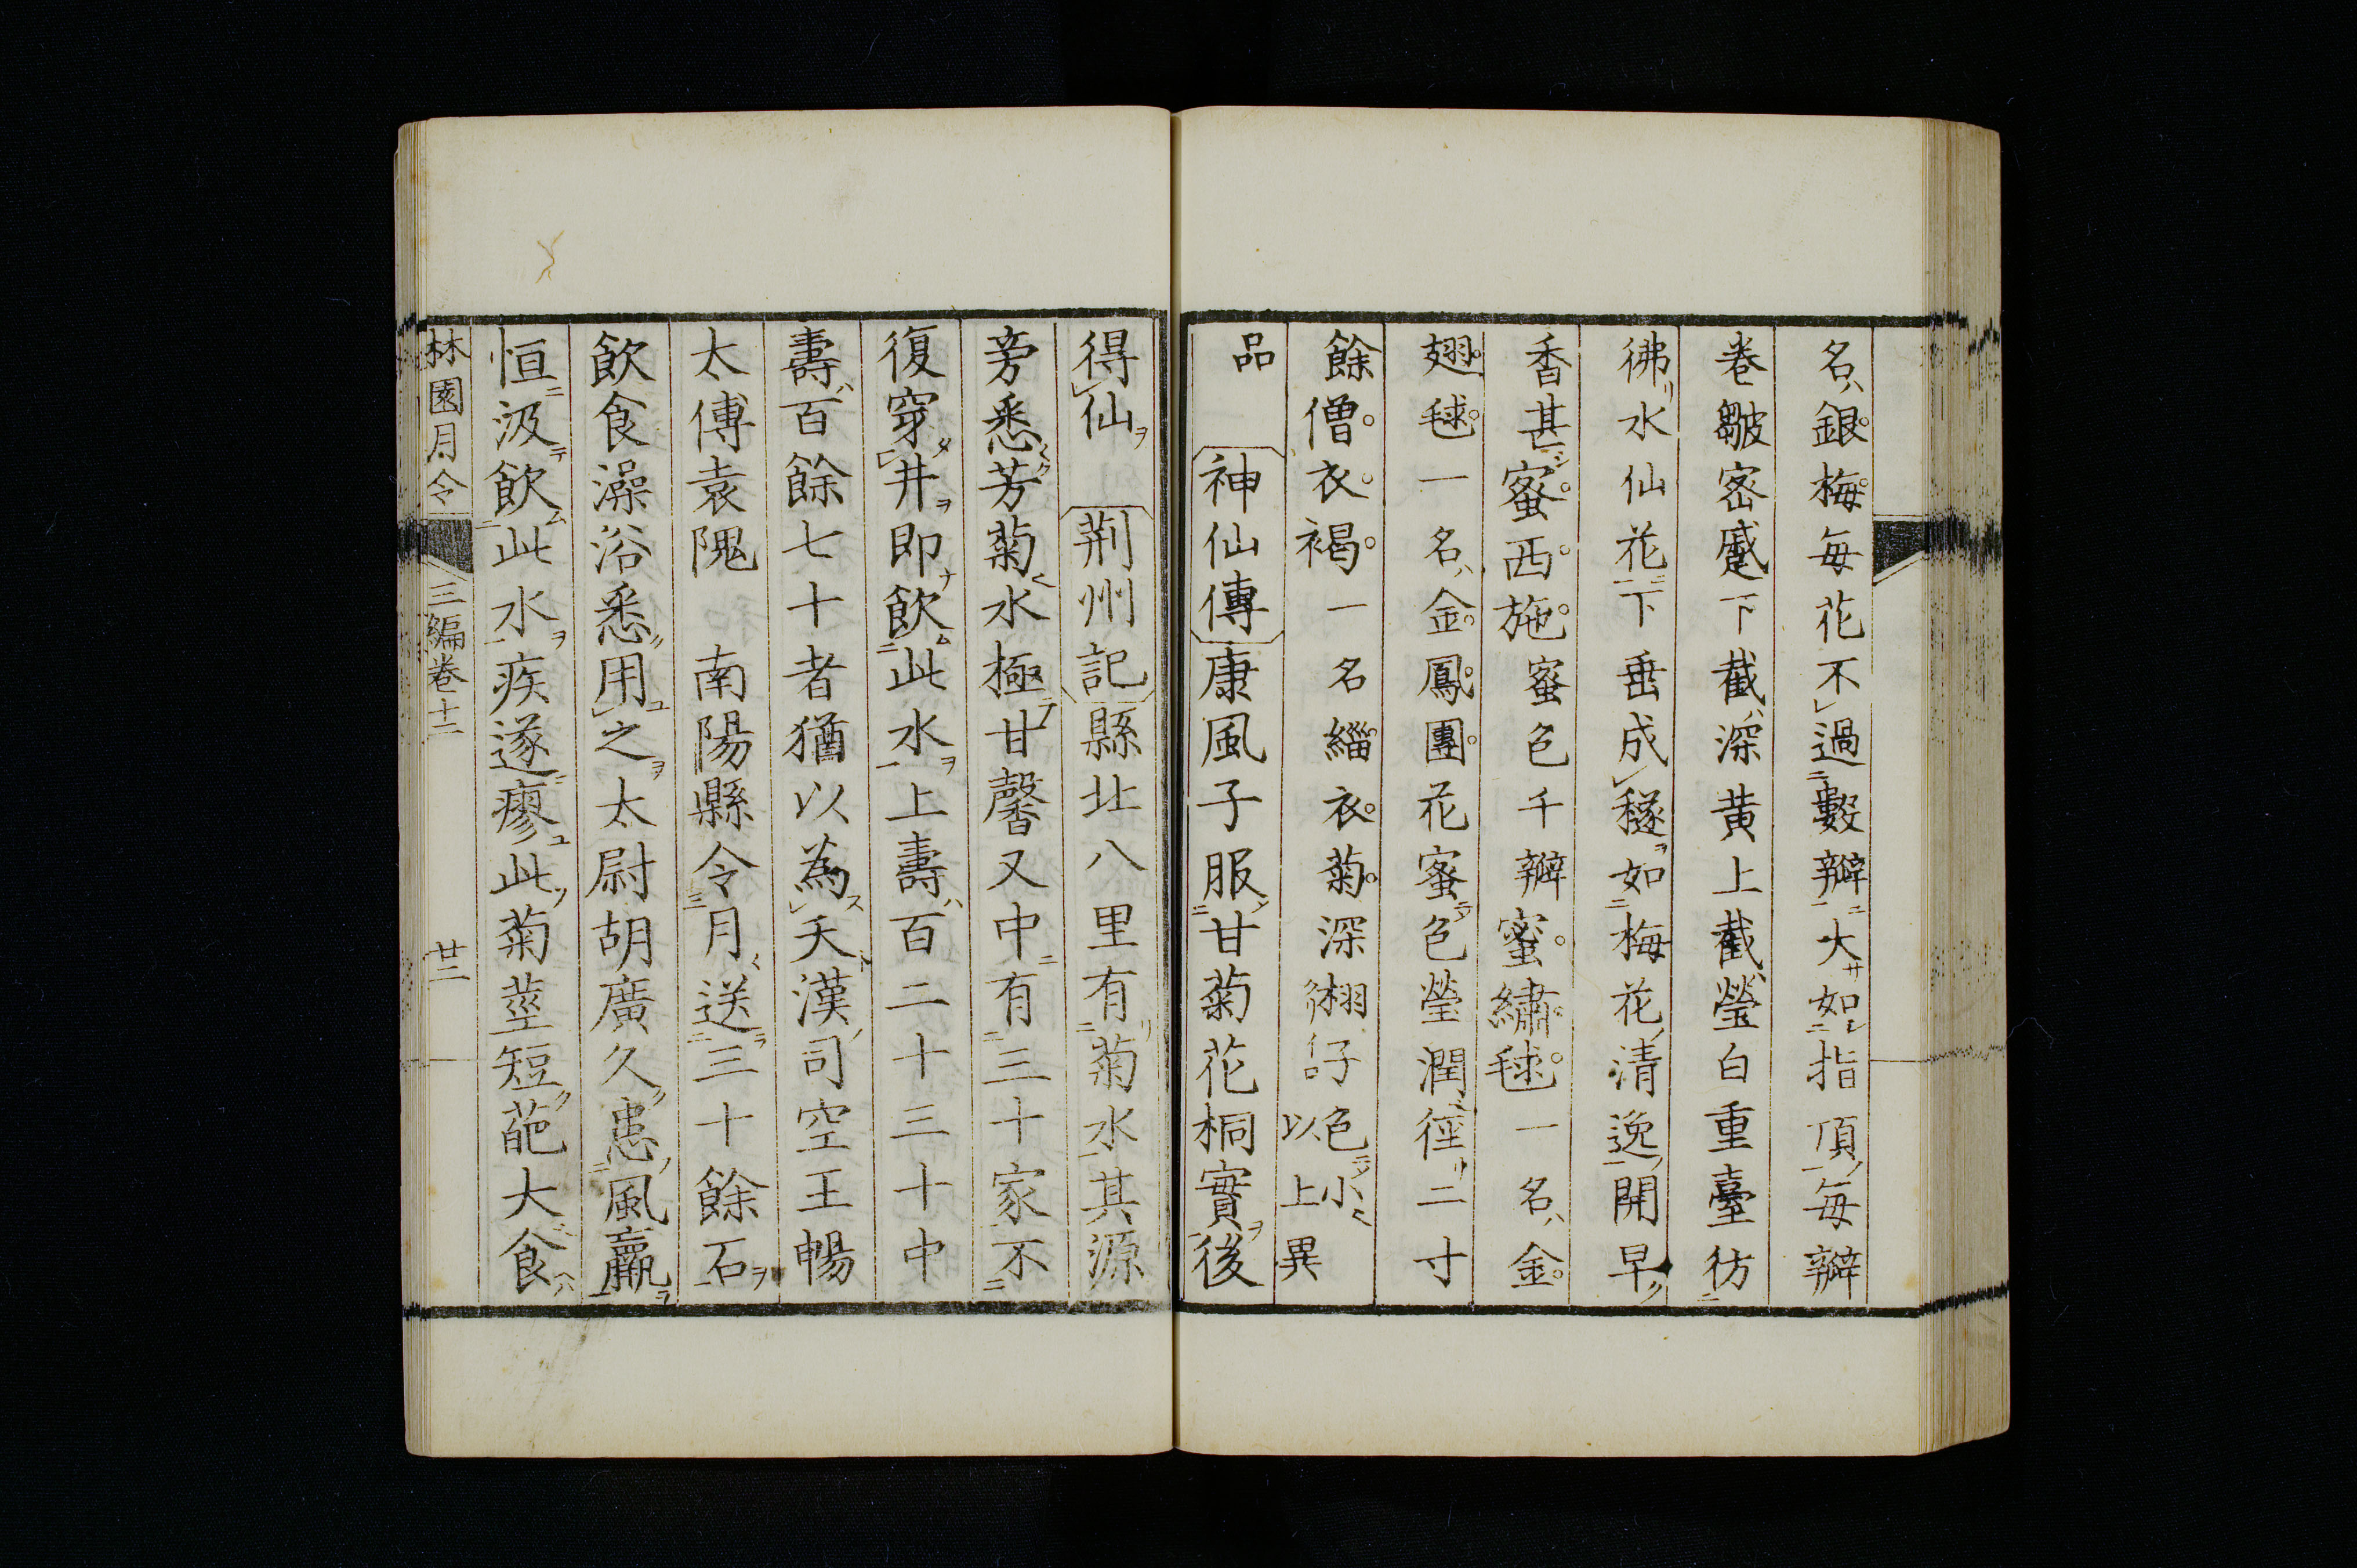 名銀梅每花不過數瓣大如指頂每瓣
卷皺密蹙下截深黄上截瑩白重臺彷
彿水仙花下垂成穟如梅花清逸開早
香甚蜜西施蜜色千瓣蜜繡毬一名金
翅毬一名金鳳團花蜜色瑩潤徑二寸
餘僧衣褐一名緇衣菊深緗仔色小以上異
品　神仙傳康風子服甘菊花桐實後
得仙　荊州記縣北八里有菊水其源
旁悉芳菊水極甘馨又中有三十家不
復穿井即飲此水上壽百二十三十中
壽百餘七十者猶以為夭漢司空王暢
太傅袁隗　南陽縣令月送三十餘石
飲食澡浴悉用之太尉胡廣久患風羸
恒汲飲此水疾遂瘳此菊莖短葩大食
林園月令　三編卷十二　廿二